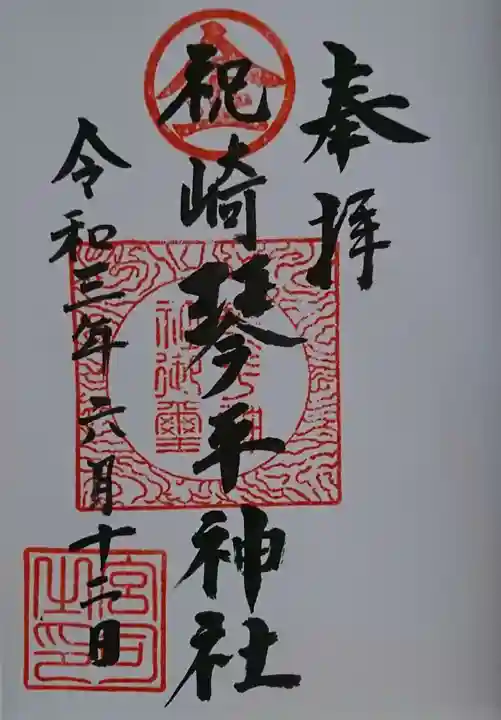 奉拝
祝崎琴平神社
令和三年六月十二日
金
神御璽
宮司之印